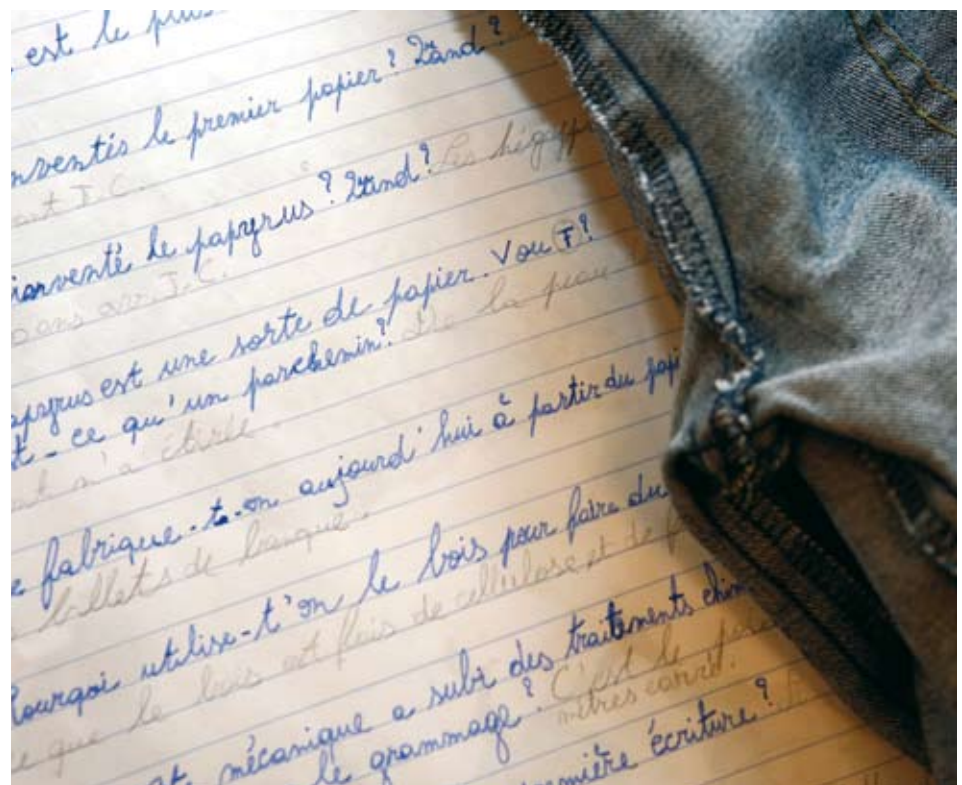 est le plus
nventés le premier papier? Qand?
ant J.C. Les hégyp
inventé le papyrus? Qand?
ans av. J.C.
apyrus est une sorte de papier. V ou F?
t-ce qu'un parchemin? De la peau
n'a étirée.
e fabrique-t-on aujourd'hui à partir du papi
billets de banque.
Pourqoi utilise-t'on le bois pour faire du
e que le bois est plais de cellulose, et de f
mécanique a subi des traitements chim
le grammage? C'est le
mètres carré.
première écriture?